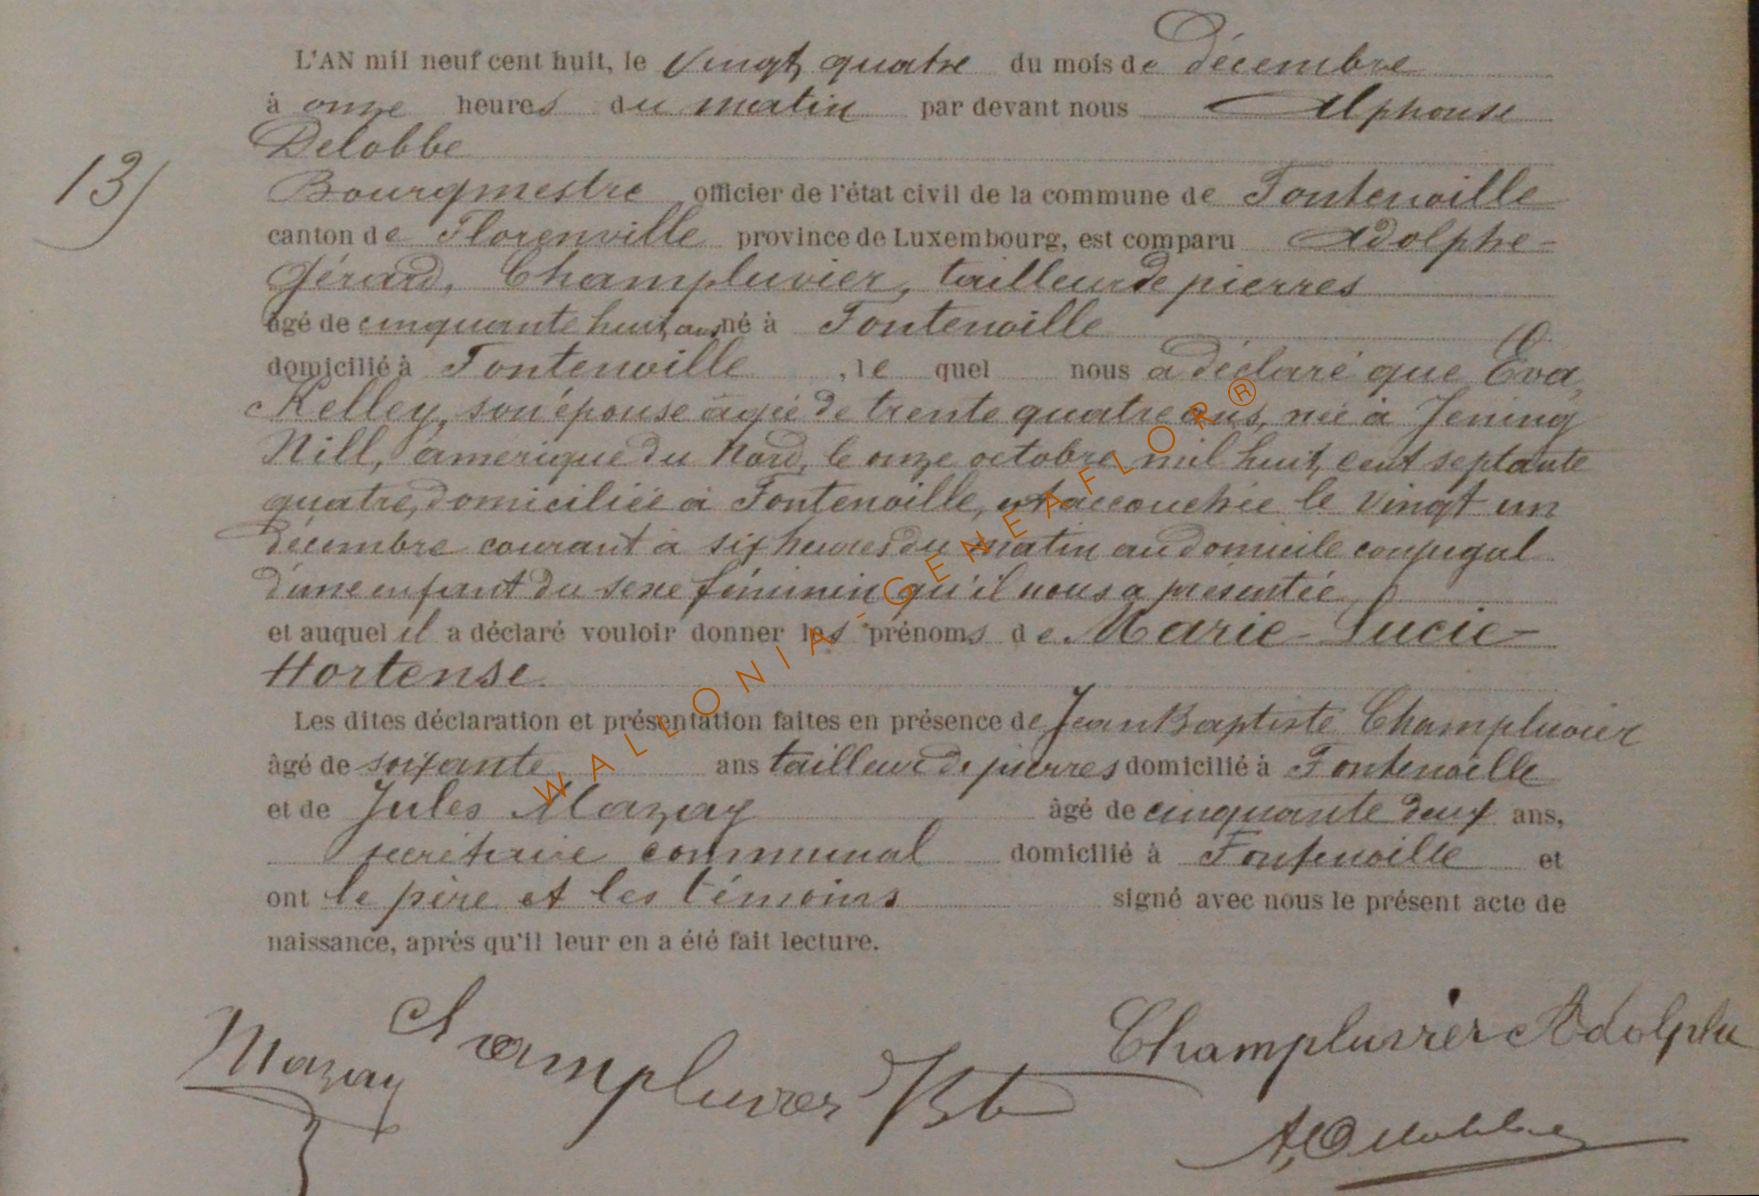 L'AN mil neuf cent huit, le vingt quatre du mois de décembre
à onze heures du matin par devant nous Alphonse
Delobbe
13)
Bourgmestre officier de l'état civil de la commune de Fontenoille
canton de Florenville province de Luxembourg, est comparu Adolphe-
Gérard, Champluvier, tailleur de pierres
âgé de cinquante huit ans né à Fontenoille
domicilié à Fontenoille, le quel nous a déclaré que Eva
Kelley, son épouse âgée de trente quatre ans, née à Jening
Nill, amerique du Nord, le onze octobre mil huit cent septante
quatre, domiciliée à Fontenoille, est accouchée le vingt un
décembre courant à six heures du matin au domicile conjugal
d'une enfant du sexe féminin qu'il nous a présentée
et auquel il a déclaré vouloir donner les prénoms de Marie-Lucie-
Hortense.
Les dites déclaration et présentation faites en présence de Jean Baptiste Champluvier
âgé de soixante ans tailleur de pierres domicilié à Fontenoille
et de Jules Mazay âgé de cinquante deux ans,
secrétaire communal domicilié à Fontenoille et
ont le père et les témoins signé avec nous le présent acte de
naissance, après qu'il leur en a été fait lecture.
WALLONIA-GENEAFLOR®
Mazay Champluvier JBte Champluvier Adolphe
A. Delobbe